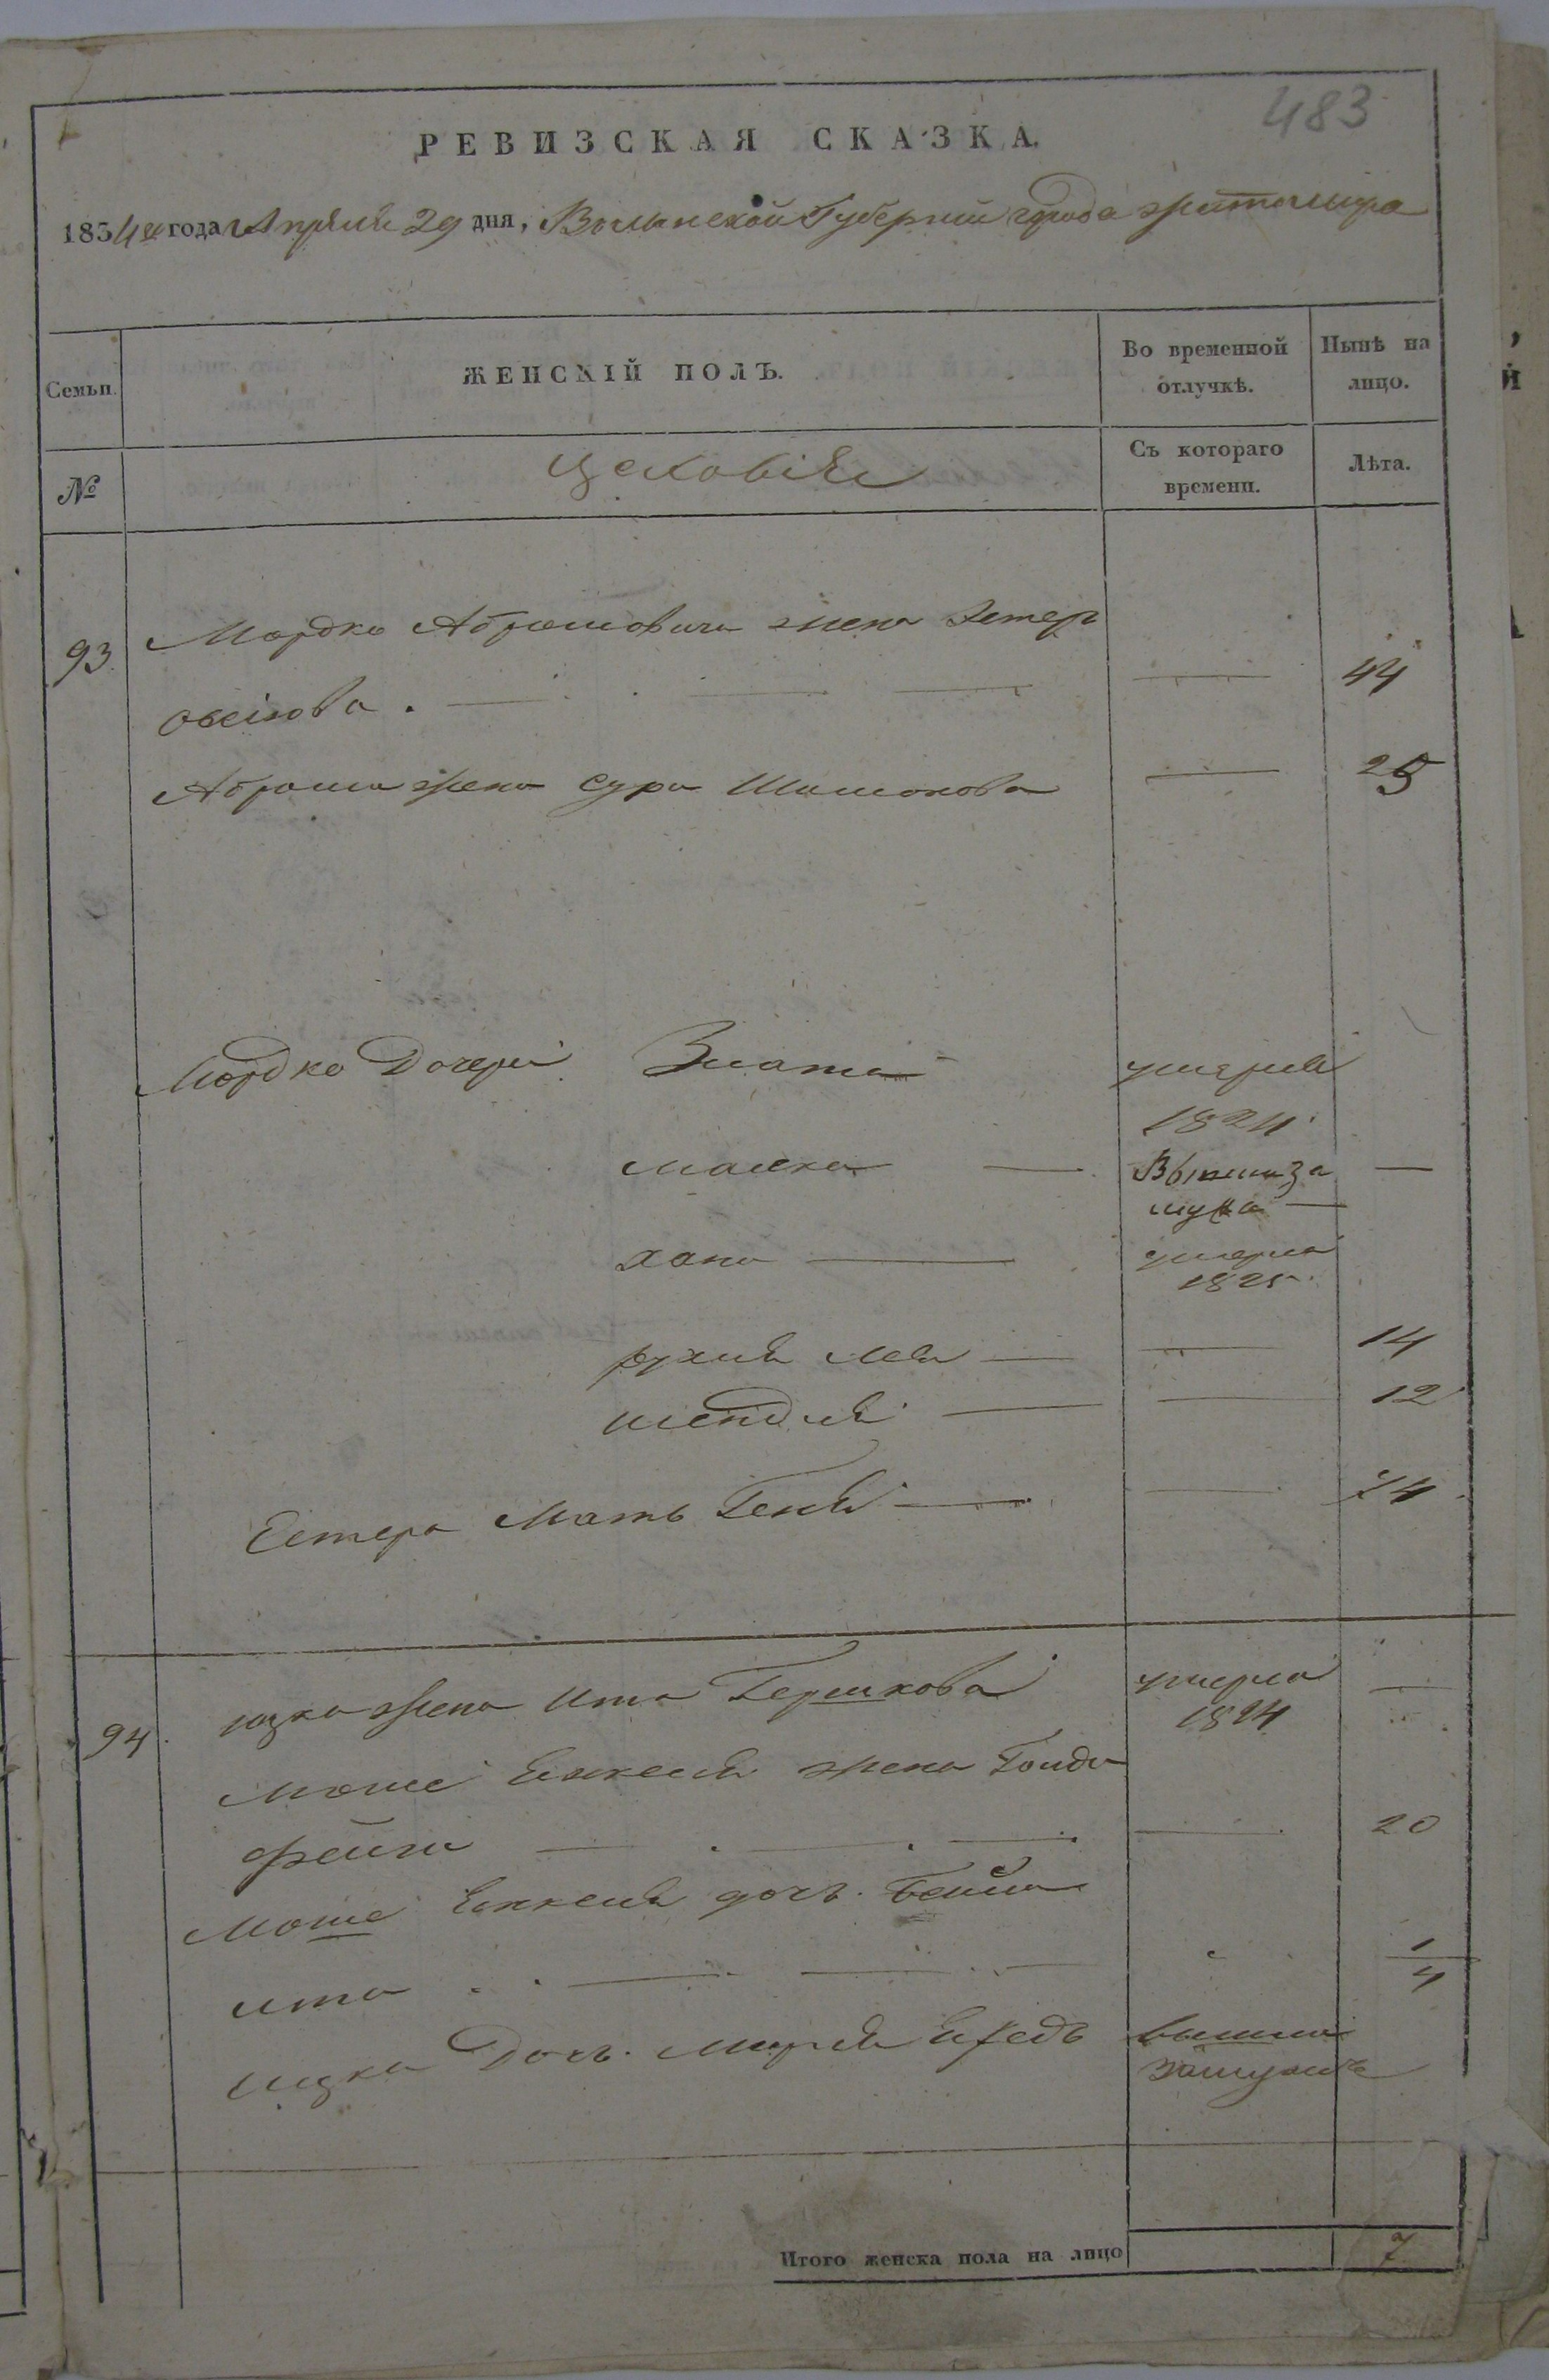 483
РЕВИЗСКАЯ СКАЗКА.
1834го года Апреля 29 дня, Волынской Губернии города Житомира
Семьи.
ЖЕНСКІЙ ПОЛЪ.
Во временной отлучкѣ.
Нынѣ на лицо.
№
Съ котораго времени.
Лѣта.
93
Мордко Абрамовича жена Естер
44
Абрама жена Сура Шлиомова
25
Мордко Дочери Злата
умерла
1824
Малка —
Вышла за
мужа —
—
Хана —
умерла
1825
Рухля Леа —
14
Шендля —
12
Естера Мать Геня —
74
94
Ицка жена Ита Гершкова
умерла
1824
—
Моше Янкеля жена Голда
Фейга —
20
Моше Янкеля дочъ. Бейла
Ита
1/4
Ицка Дочъ.
вышла
замужъ
Итого женска пола на лицо
7